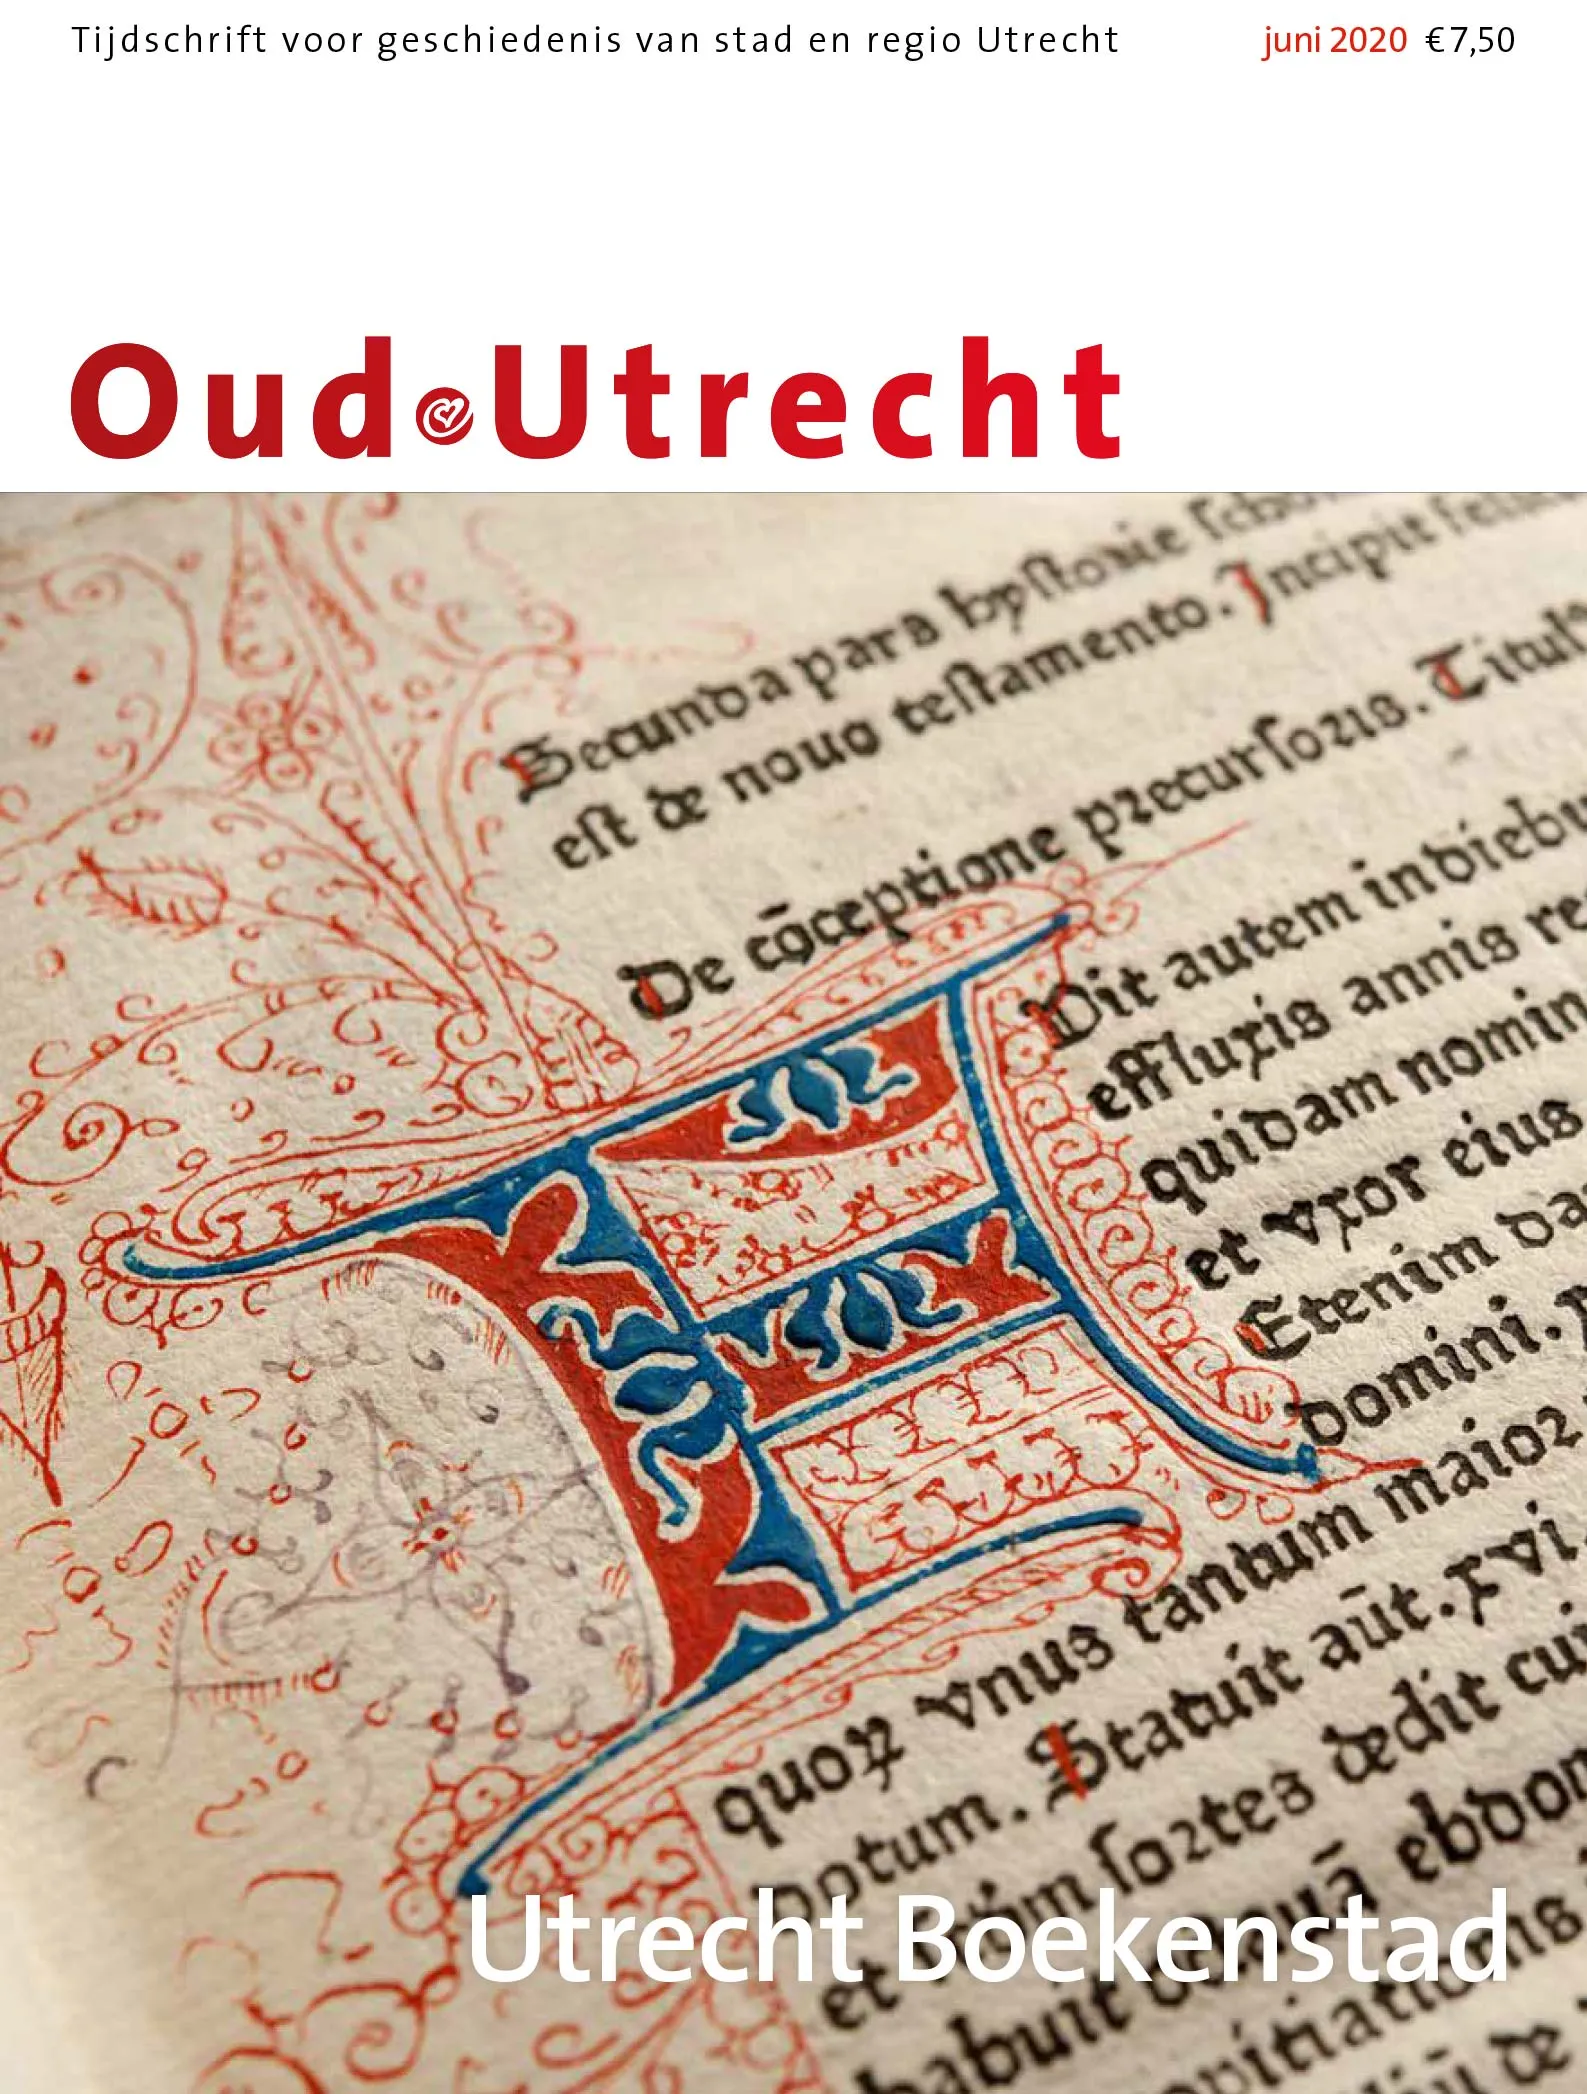 Tijdschrift voor geschiedenis van stad en regio Utrecht
juni 2020 €7,50
Oud Utrecht
Secunda pars hystorie
est de nouo testamento. Incipit
De cōceptione precursoris. Titulꝰ
Vit autem in diebu
effluxis annis re
quidam nomin
et vxor eius
Etenim da
domini.
quoꝝ vnus tantum maior
potum. Statuit aūt. xvi.
et sortes dedit cui
habuit
Utrecht Boekenstad